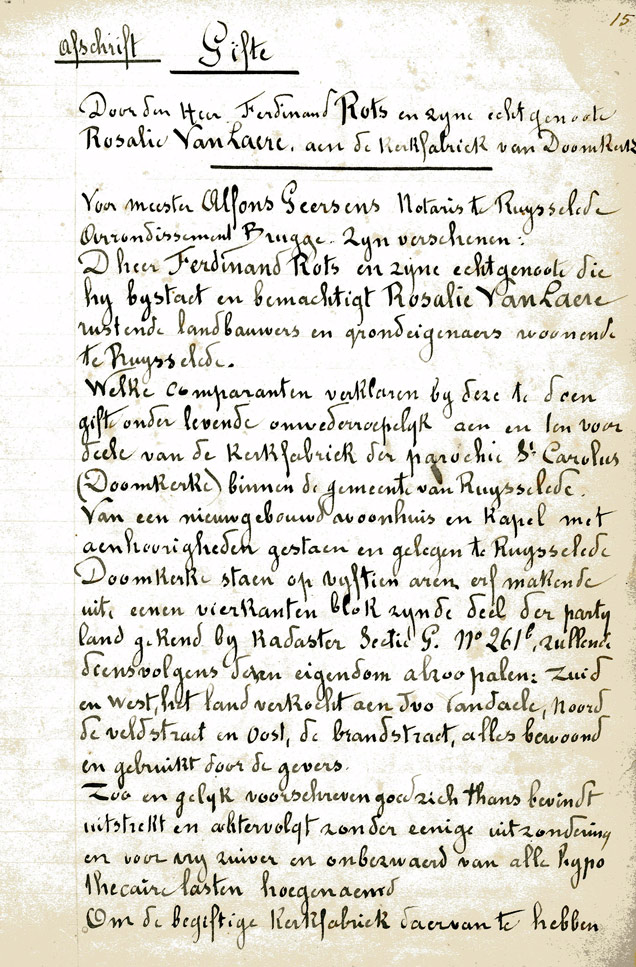 15
Afschrift Gifte
Door den Heer Ferdinand Rots en zyne echtgenoote
Rosalie VanLaere, aen de Kerkfabriek van Doomkerke
Voor meester Alfons Geersens Notaris te Ruysselede
Arrondissement Brugge. Zyn verschenen:
D'heer Ferdinand Rots en zyne echtgenoote die
hy bystaet en bemachtigt Rosalie VanLaere
rustende landbauwers en grondeigenaers woonende
te Ruysselede.
Welke Comparanten verklaren by deze te doen
gifte onder levende onwederroepelyk aen en ten voor
deele van de Kerkfabriek der parochie St Carolus
(Doomkerke) binnen de gemeente van Ruysselede.
Van een nieuwgebouwd woonhuis en Kapel met
aenhoorigheden gestaen en gelegen te Ruysselede
Doomkerke staen op vyftien aren erf makende
uit, eenen vierkanten blok zynde deel der party
land gekend by Kadaster Sectie G. No 261, zullende
deensvolgens dezen eigendom alzoo palen: Zuid
en West, het land verkocht aen Ivo Vandaele, Noord
de veldstraet en Oost, de brandstraet, alles bewoond
en gebruikt door de gevers.
Zoo en gelyk voorschreven goed zich thans bevindt
uitstrekt en achtervolgt zonder eenige uitzondering
en voor vry zuiver en onbezwaerd van alle hypo
thecaire lasten hoegenaemd
Om de begiftige Kerkfabriek daervan te hebben